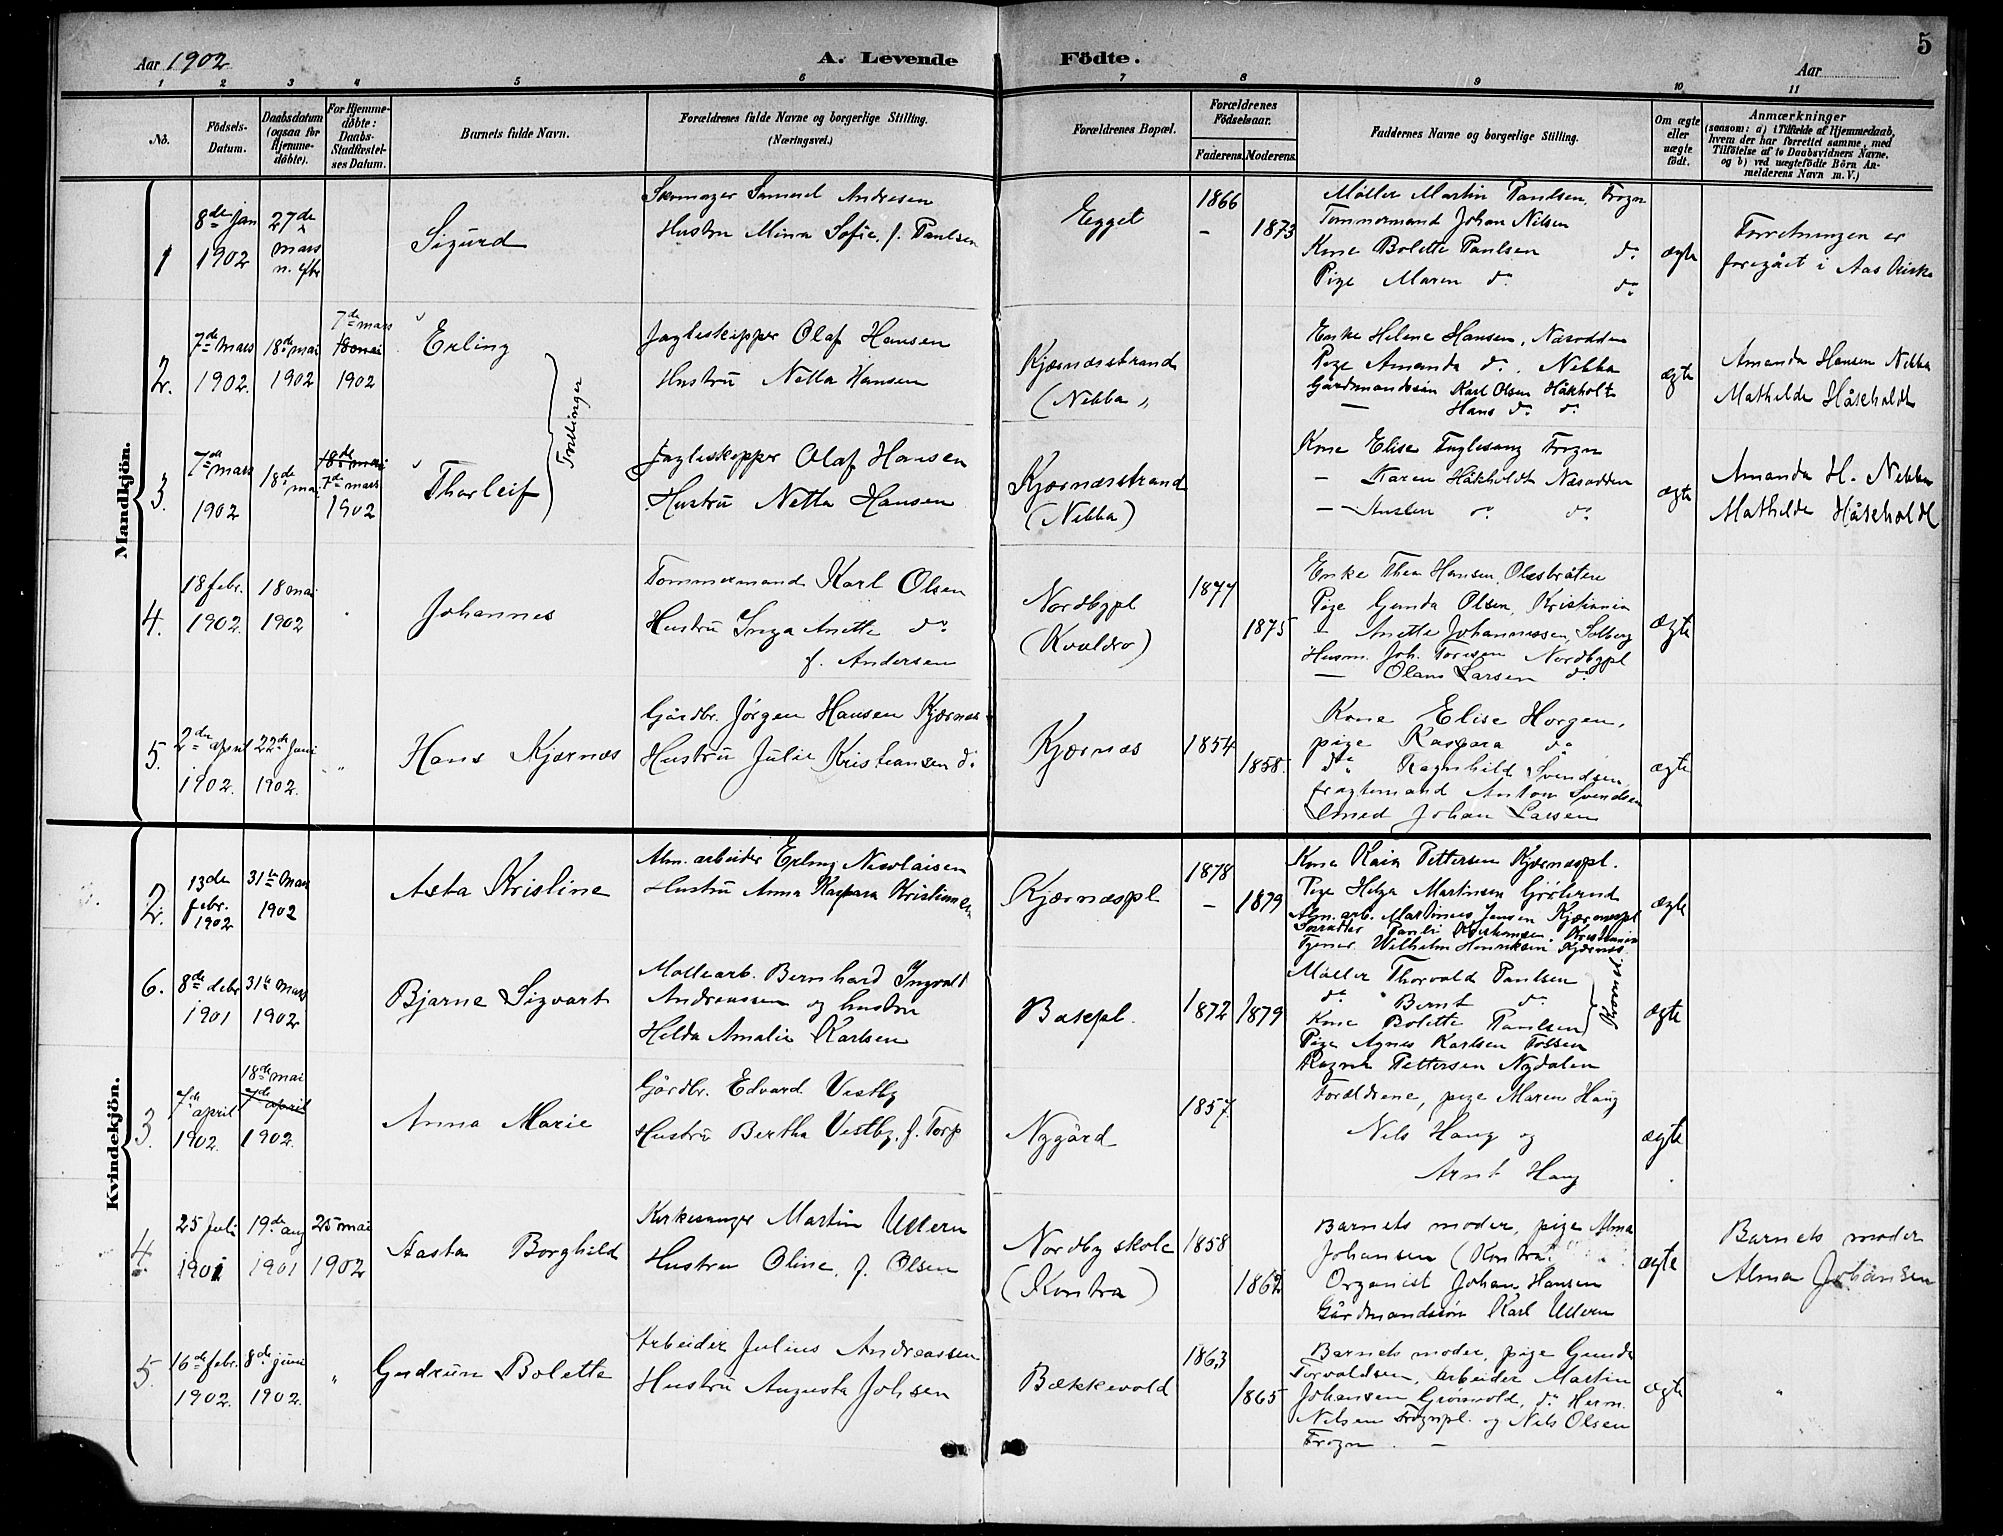 5
Aar 1902
A. Levende Födte.
Aar
1 2 3 4 5 6 7 8 9 10 11
No.
Födsels-Datum.
Daabsdatum (ogsaa for Hjemme-döbte).
For Hjemme-döbte: Daabs-Stadfæstel-ses Datum.
Barnets fulde Navn.
Forældrenes fulde Navne og borgerlige Stilling. (Næringsvei.)
Forældrenes Bopæl.
Forældrenes Födselsaar.
Faderens. Moderens.
Faddernes Navne og borgerlige Stilling.
Om ægte eller uægte födt.
Anmærkninger
(saasom: a) i Tilfælde af Hjemmedaab, hvem der har forrettet samme, med Tilföielse af to Daabsvidners Navne, og b) ved uægtefödte Börn An-melderens Navn m. V.)
Mandkjön.
1
8de Jan
1902
27de
mars
Sigurd
Skomager Samuel Andresen
Hustru Mina Sofie, f. Paulsen
Egget
1866
– 1873
Møller Martin Paulsen, Frogn
Tømmermand Johan Nilsen
Kone Bolette Paulsen do
Pige Maren do do
ægte
Forretningen er
foregået i Aas Kirke
2.
7de mars
1902.
18de mai
1902
7de mars
18 mai
1902
Erling
Trillinger
Jagteskipper Olaf Hansen
Hustru Netta Hansen
Kjærnæsstrand
(Nebba)
Enke Helene Hansen, Næsodden
Pige Amanda do. Nebba
Gårdmandssøn Karl Olsen Håkholt
— Hans do do
ægte
Amanda Hansen Nebba
Mathilde Håkholdt
3.
7de mars
1902
18de mai
18de mai
7de mars
1902
Thorleif
Jagteskipper Olaf Hansen
Hustru Netta Hansen
Kjærnæsstrand
(Nebba)
Kone Elise Fuglesang Frogn
– Karen Håkholdt Næsodden
ægte
Amanda H. Nebba
Mathilde Håkholdt
4.
18 febr.
1902.
18 mai
1902
Johannes
Tømmermand Karl Olsen
Hustru Inga Anette do
f. Andersen
Nordbypl
(Kvældro)
1877
1875
Enke Thea Hansen, Olasbråten
Pige Gunda Olsen, Kristiania
– Anette Johannessen, Solberg
Husm. Joh. Toresen Nordbypl
— Olaus Larsen do
ægte
5.
2de april
1902.
22de Juni
1902.
Hans Kjærnæs
Gårdbr. Jørgen Hansen Kjærnæs
Hustru Julie Kristiansen do
Kjærnæs
1854
1858.
Kone Elise Horgen,
pige Kaspara do
do Ragnhild Svendsen,
fragtemand Anton Svendsen
Smed Johan Larsen
ægte
Kvindekjön.
2.
13de
febr.
1902
31te Mars
1902
Asta Kristine
Alm. arbeider Erling Nicolaisen
Hustru Anna Kaspara Kristiansen
Kjærnæspl
1878
– 1879
Kone Kaia Pettersen Kjærnæspl.
Pige Helga Martinsen Gjølerud
Alm. arb. Martinus Jensen Kjærnæspl
Tjener Wilhelm Henriksen Kjærnæs
ægte
6.
8de debr
1901
31te mars
1902
Bjarne Sigvart
Møllearb. Bernhard Ingvald
Andreassen og hustru
Hilda Amalie Karlsen
Bakpl.
1872 1879
Møller Thorvald Paulsen
do Bernt do
Kone Bolette Paulsen
Kjærnæs
Pige Agnes Karlsen Fossen
Ragna Pettersen Nydalen
ægte
3.
7de
april
1902.
18de mai
7de april
1902.
Anna Marie
Gårdbr. Edvard Vestby
Hustru Bertha Vestby, f. Torp
Nygård
1857
Forældrene, pige Maren Haug
Nils Haug og
Arnt Haug
ægte
4.
25 Juli
1901
19de aug
1901
25 mai
1902
Aasta Borghild
Kirkesanger Martin Ullern
Hustru Oline, f. Olsen
Nordby skole
(Kontra)
1858
1862
Barnets moder, pige Alma
Johansen (Kontra
Organist Johan Hansen
Gårdmandssøn Karl Ullern
ægte
Barnets moder
Alma Johansen
5.
16de febr.
1902.
8de juni
1902.
Gudrun Bolette
Arbeider Julius Andreassen
Hustru Augusta Johsen
Bækkevold
1863
1865
Barnets moder, pige Gunda
Torvaldsen, arbeider Martin
Johansen Grønvold, do Herm.
Nilsen Frognpl. og Nils Olsen
Frogn. –
ægte